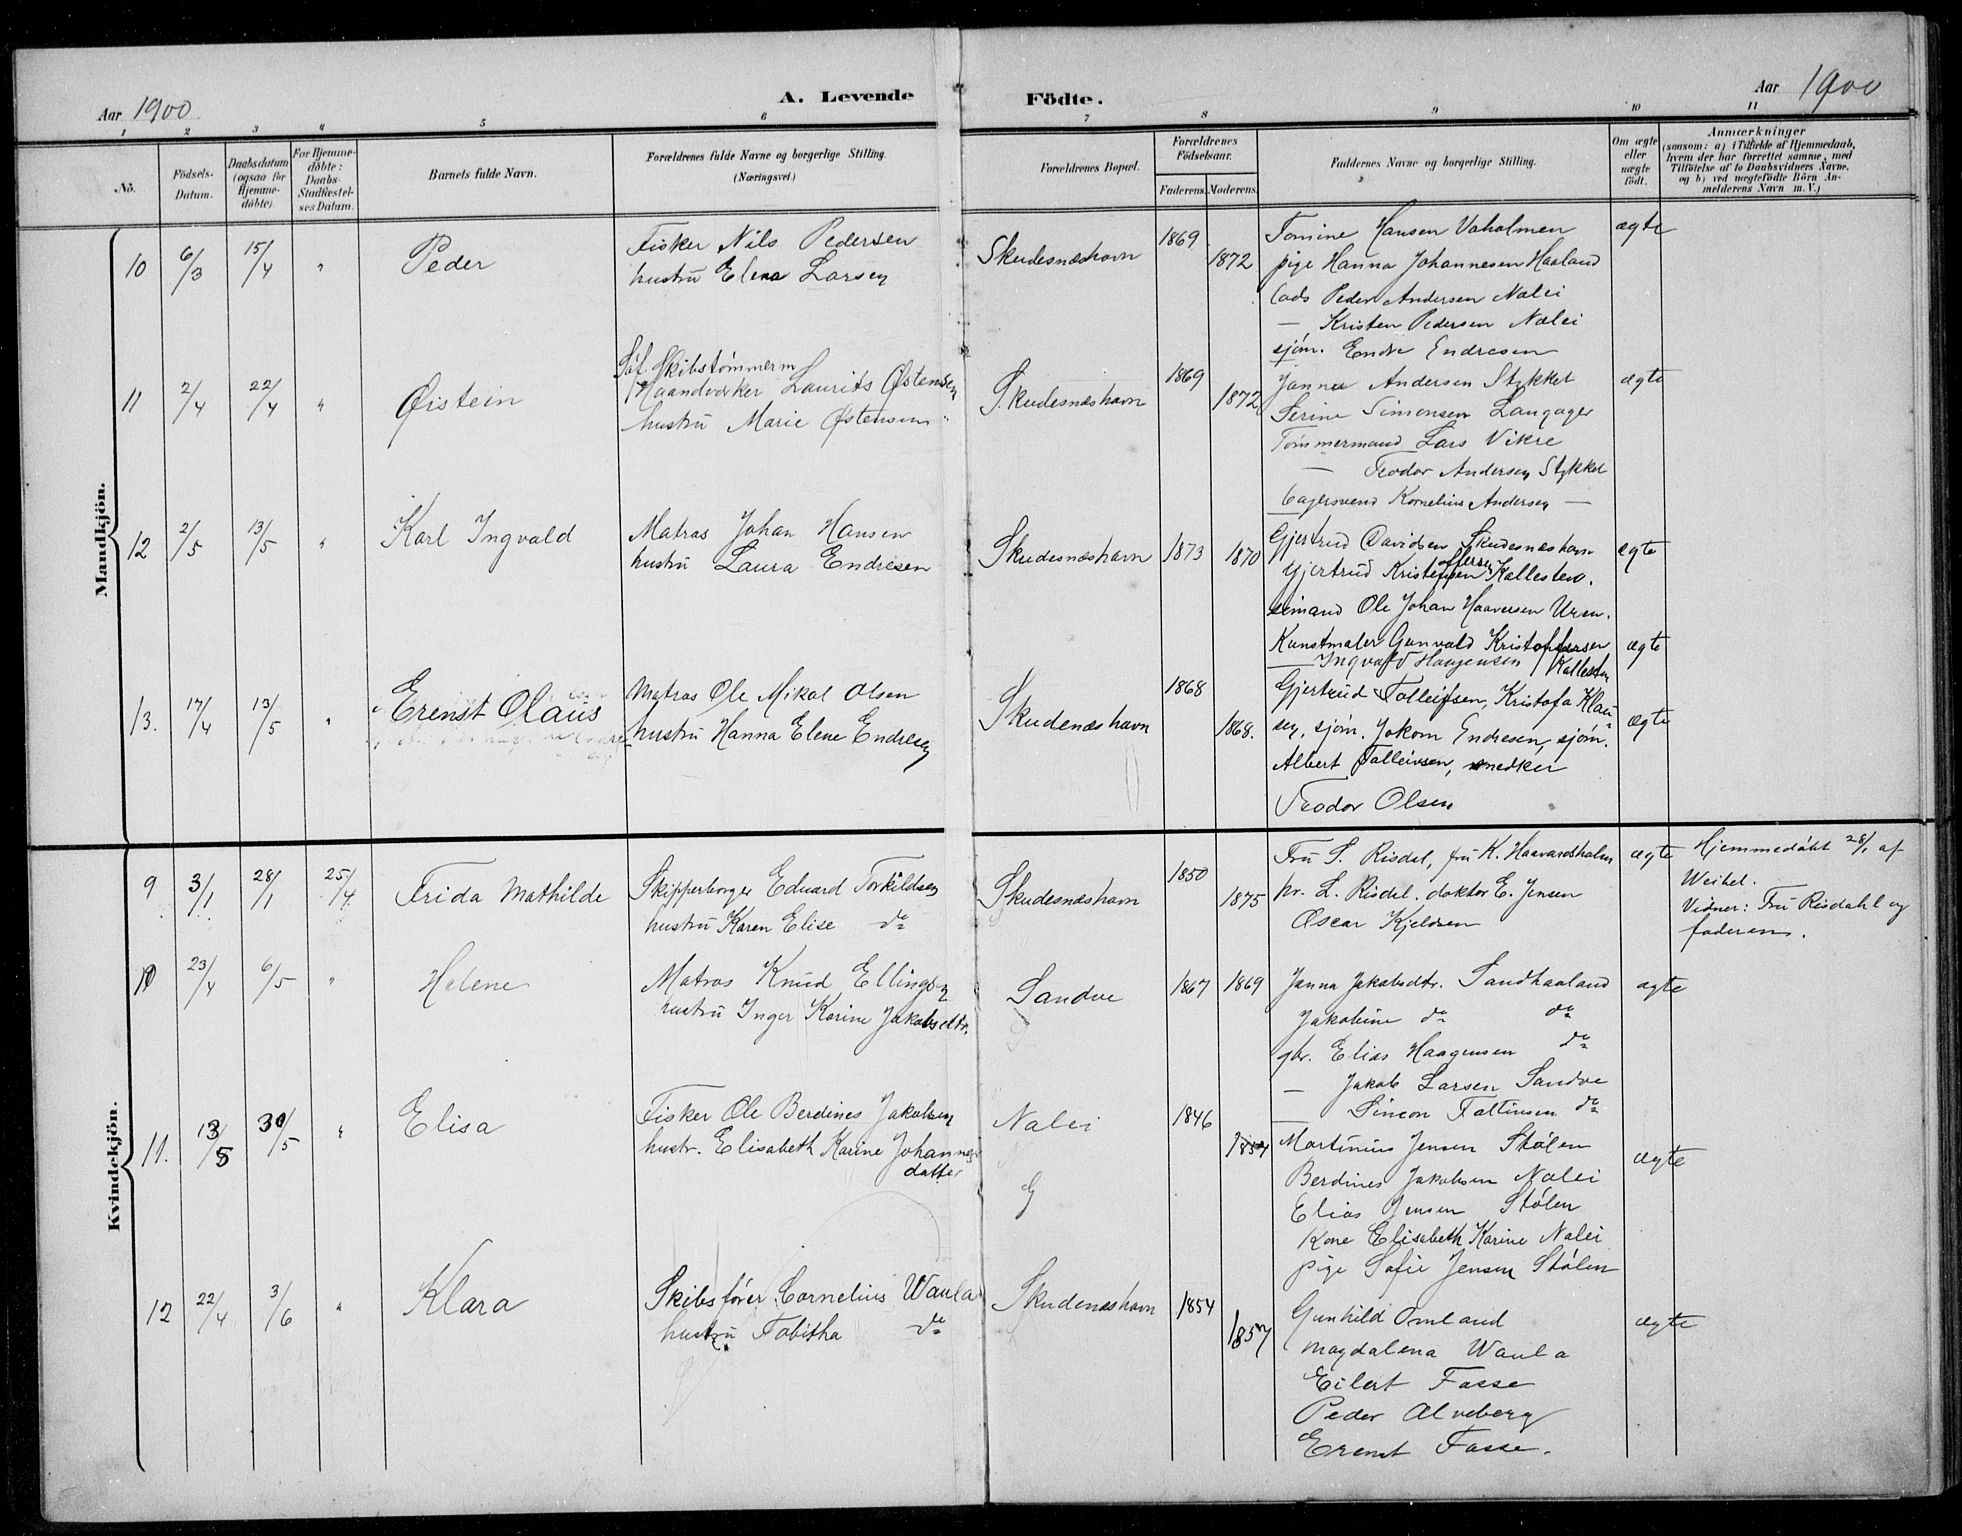 Aar 1900
A. Levende Födte.
Aar 1900
1 2 3 4 5 6 7 8 9 10 11
No.
Födsels-Datum.
Daabsdatum (ogsaa for Hjemme-döbte).
For Hjemme-döbte: Daabs-Stadfæstel-ses Datum.
Barnets fulde Navn.
Forældrenes fulde Navne og borgerlige Stilling.
(Næringsvei.)
Forældrenes Bopæl.
Forældrenes Födselsaar.
Faderens. Moderens.
Faddernes Navne og borgerlige Stilling.
Om ægte eller uægte födt.
Anmærkninger
(saasom: a) i Tilfælde af Hjemmedaab,
hvem der har forrettet samme, med
Tilföielse af to Daabsvidners Navne,
og b) ved uægtefödte Börn An-
melderens Navn m. V.)
Mandkjön.
10 6/3 15/4 " Peder
Fisker Nils Pedersen
hustru Elena Larsen
Skudesnæshavn 1869 1872
Tomine Hansen Vaholmen
pige Hanna Johannesen Haaland
Cads Peder Andersen Nalei
— Kristen Pedersen Nalei
sjøm. Endre Endresen
ægte
11 2/4 22/4 " Øistein
Søf. Skibstømmerm
Haandværker Laurits Østensen
hustru Marie Østensen
Skudesnæshavn 1869 1872
Janna Andersen Stykket
Serine Simonsen Langager
Tømmermand Lars Vikre
— Teodor Andersen Stykket
Cagersvend Kornelius Andersen —
ægte
12 2/5 13/5 " Karl Ingvald
Matros Johan Hansen
hustru Laura Endresen
Skudesnæshavn 1873 1870
Gjertrud Davidsen Skudesnæshavn
Gjertrud Kristensen Kallesten.
sømand Ole Johan Haaversen
Kunstmaler Gunvald Kristoffersen
— Ingvald Haagensen Kallesten
ægte
ægte
13. 17/4 13/5 " Erenst Olaüs
Matros Ole Mikal Olsen
hustru Hanna Elene Endresen
Skudenæshavn 1868 1868.
Gjertrud Tolleifsen, Kristofa Klau-
sen, sjøm. Jokom Endresen, sjøm.
Albert Tolleivsen, snedker
Teodor Olsen
ægte
Kvindekjön.
9 3/1 28/1 25/4 Frida Mathilde
Skipperborger Eduard Torkildsen
hustru Karen Elise do
Skudesnæshavn 1850 1875
Fru S. Risdel, fru K. Haavardsholm
hr. L. Risdel. doktor E. Jensen
Oscar Kjeldsen
ægte
Hjemmedøbt 28/1 af
Weibel.
Vidner: Fru Risdahl og
faderen.
10 23/4 6/5 " Helene
Matros Knud Ellingsen
hustru Inger Karine Jakobsdtr.
Sandve 1867 1869
Janna Jakobsdtr. Sandhaaland
Jakobine do do
gbr. Elias Haagensen do
— Jakob Larsen Sandve
— Simon Faltinsen do
ægte
11. 13/5 30/5 " Elisa
Fisker Ole Berdines Jakobsen
hustr. Elisabeth Karine Johannes-
datter
Nalei 1846 1857
Martinius Jensen Stølen
Berdines Jakobsen Nalei
Elias Jensen Stølen
Kone Elisabeth Karine Nalei
pige Sofie Jensen Stølen
ægte
12 22/4 3/6 " Klara
Skibsfører Cornelius Waula
hustru Tabitha do
Skudenæshavn 1854 1857
Gunhild Omland
Magdalena Waula
Eilert Fasse
Peder Alveberg
Erenst Fasse.
ægte